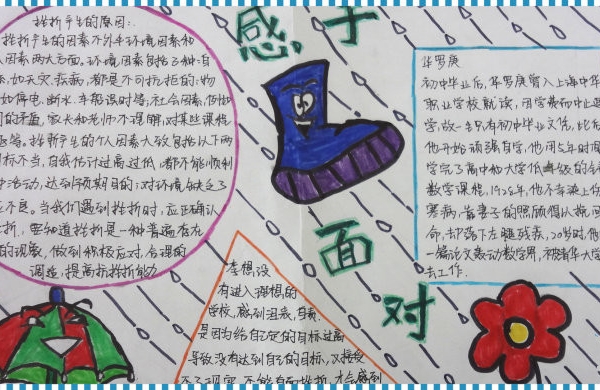 感于
面
对
挫折产生的原因:
挫折产生的因素不外乎环境因素和
人因素两大方面。环境因素包括了种:自
如天灾、疾病,都是不可抗拒的:物
如停电、断水、车船误时等;社会因素,
的矛盾,家长和老师不理解,对某些课程
等。挫折产生的个人因素大致包括以下两
目标不当,自我估计过高过低,都不能顺利
活动,达到预期目的;对环境缺乏了
应不良。当我们遇到挫折时,应正确认
折,要知道挫折是一种普遍存在
的现象,做到积极应对,合理的
调适,提高抗挫折能力
华罗庚
初中毕业后,华罗庚曾入上海中华
职业学校就读,因学费而中途退
学,故一生只有初中毕业文凭,此后
他开始顽强自学,他用5年时间
学完了高中和大学低年级的全部
数学课程,1928年,他不幸染上伤
寒病,靠妻子的照顾得以挽回
命,却落下左腿残疾,20岁时,他
一篇论文轰动数学界,被清华大学
去工作.
李想没
有进入理想的
学校,感到沮丧,自卑,
是因为给自己定的目标过高
导致没有达到自己的目标,又接受
不了现实,不能面对挫折,才会感到